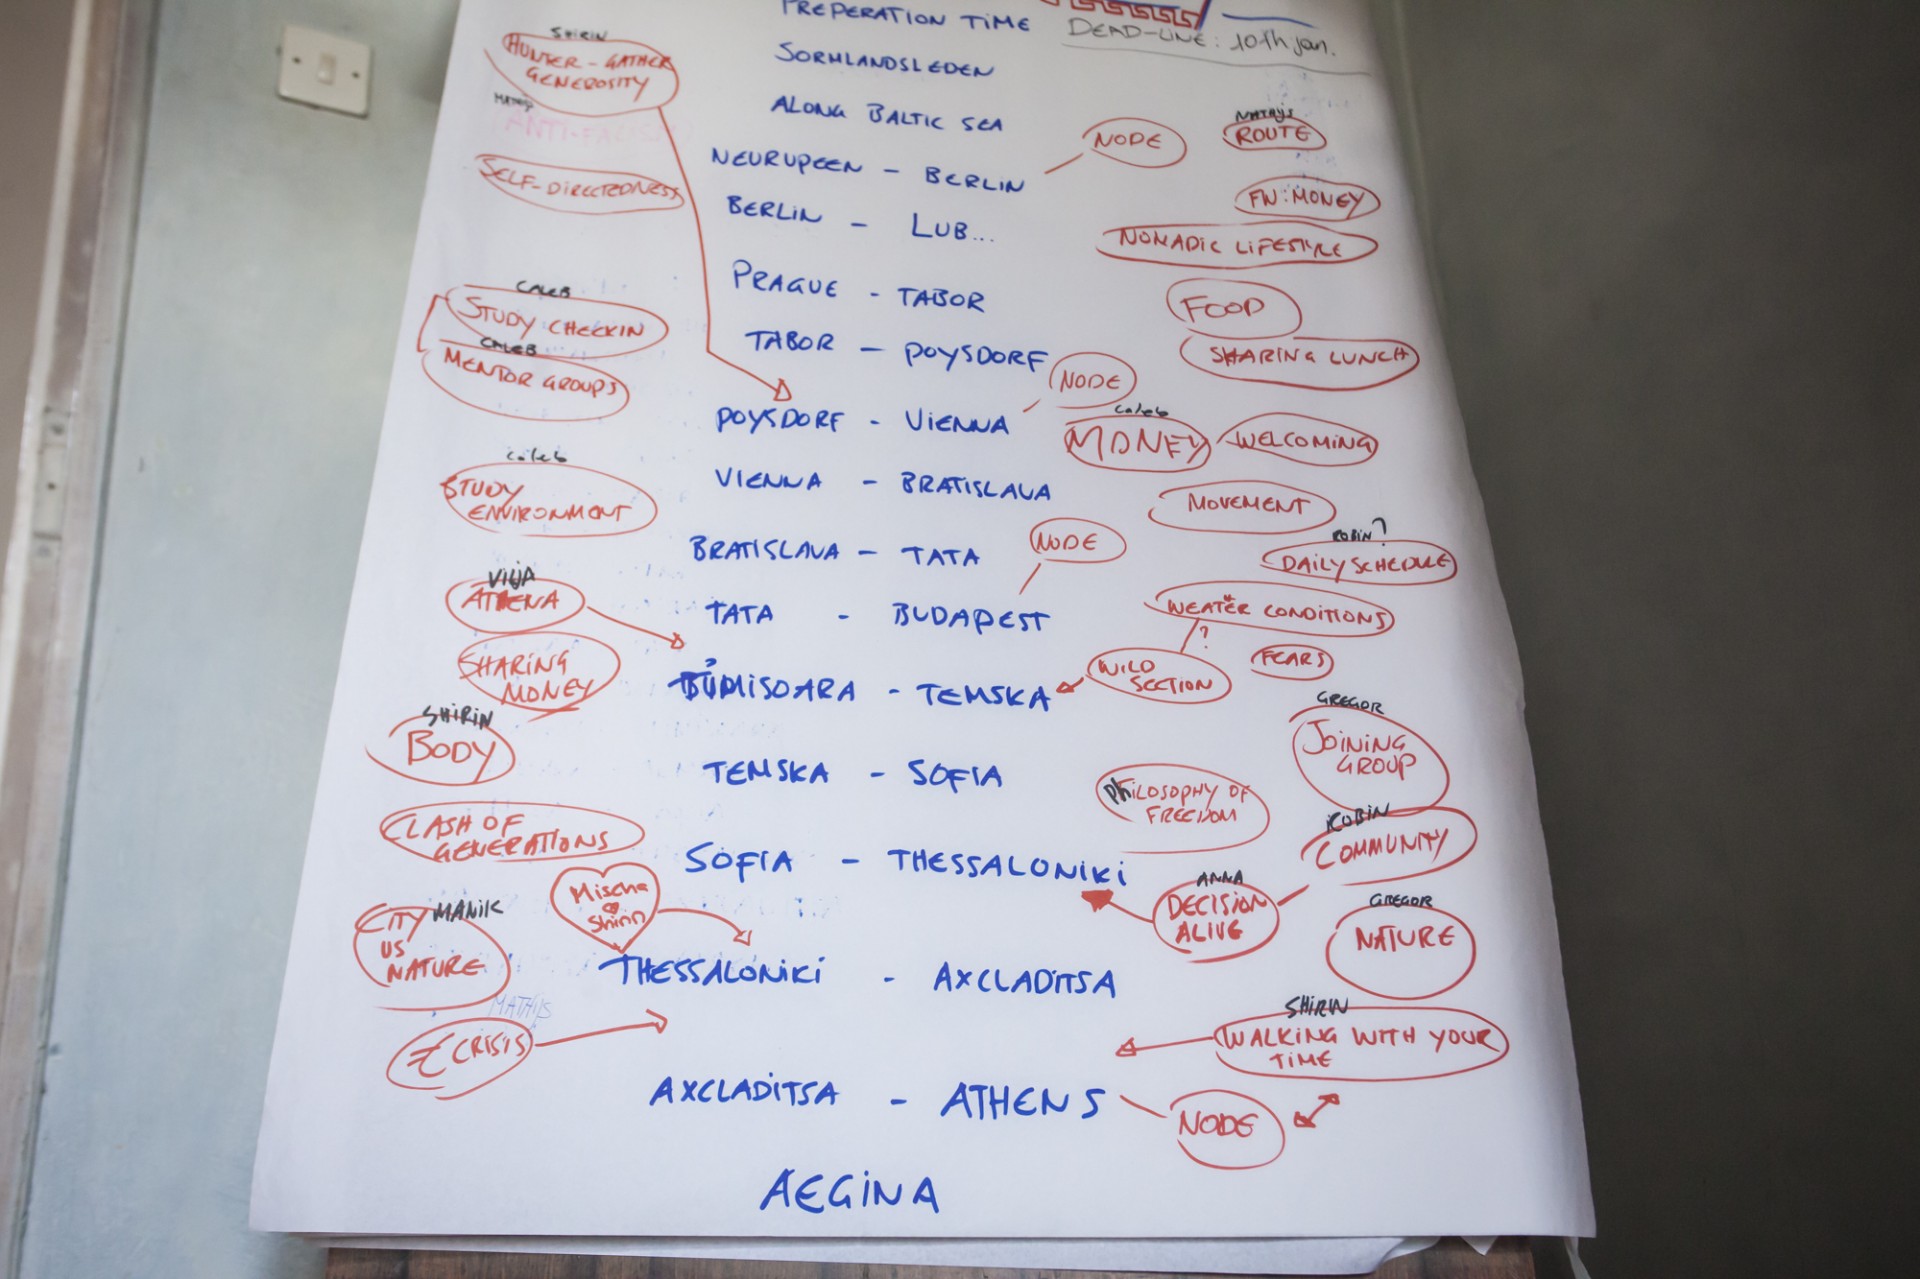 PREPERATION TIME
DEAD-LINE: 10th jan.
SORMLANDSLEDEN
ALONG BALTIC SEA
NEURUPEEN - BERLIN
NODE
BERLIN - LUB...
PRAGUE - TABOR
TABOR - POYSDORF
NODE
POYSDORF - VIENNA
VIENNA - BRATISLAVA
BRATISLAVA - TATA
NODE
TATA - BUDAPEST
TIMISOARA - TEMSKA
TEMSKA - SOFIA
SOFIA - THESSALONIKI
THESSALONIKI - AXCLADITSA
AXCLADITSA - ATHENS
NODE
AEGINA
SHIRIN
HUNTER-GATHER
GENEROSITY
SELF-DIRECTEDNESS
CALEB
STUDY CHECKIN
CALEB
MENTOR GROUPS
caleb
STUDY
ENVIRONMENT
VILJA
ATHENA
SHARING
MONEY
SHIRIN
BODY
CLASH OF
GENERATIONS
Mischa
Shirin
MANIK
CITY
VS
NATURE
MATHIJS
€ CRISIS
MATHIJS
ROUTE
FW: MONEY
NOMADIC LIFESTYLE
FOOD
SHARING LUNCH
caleb
MONEY
WELCOMING
MOVEMENT
ROBIN?
DAILY SCHEDULE
WEATHER CONDITIONS
?
WILD
SECTION
FEARS
GREGOR
JOINING
GROUP
PHILOSOPHY OF
FREEDOM
ROBIN
COMMUNITY
ANNA
DECISION
ALIVE
GREGOR
NATURE
SHIRIN
WALKING WITH YOUR
TIME